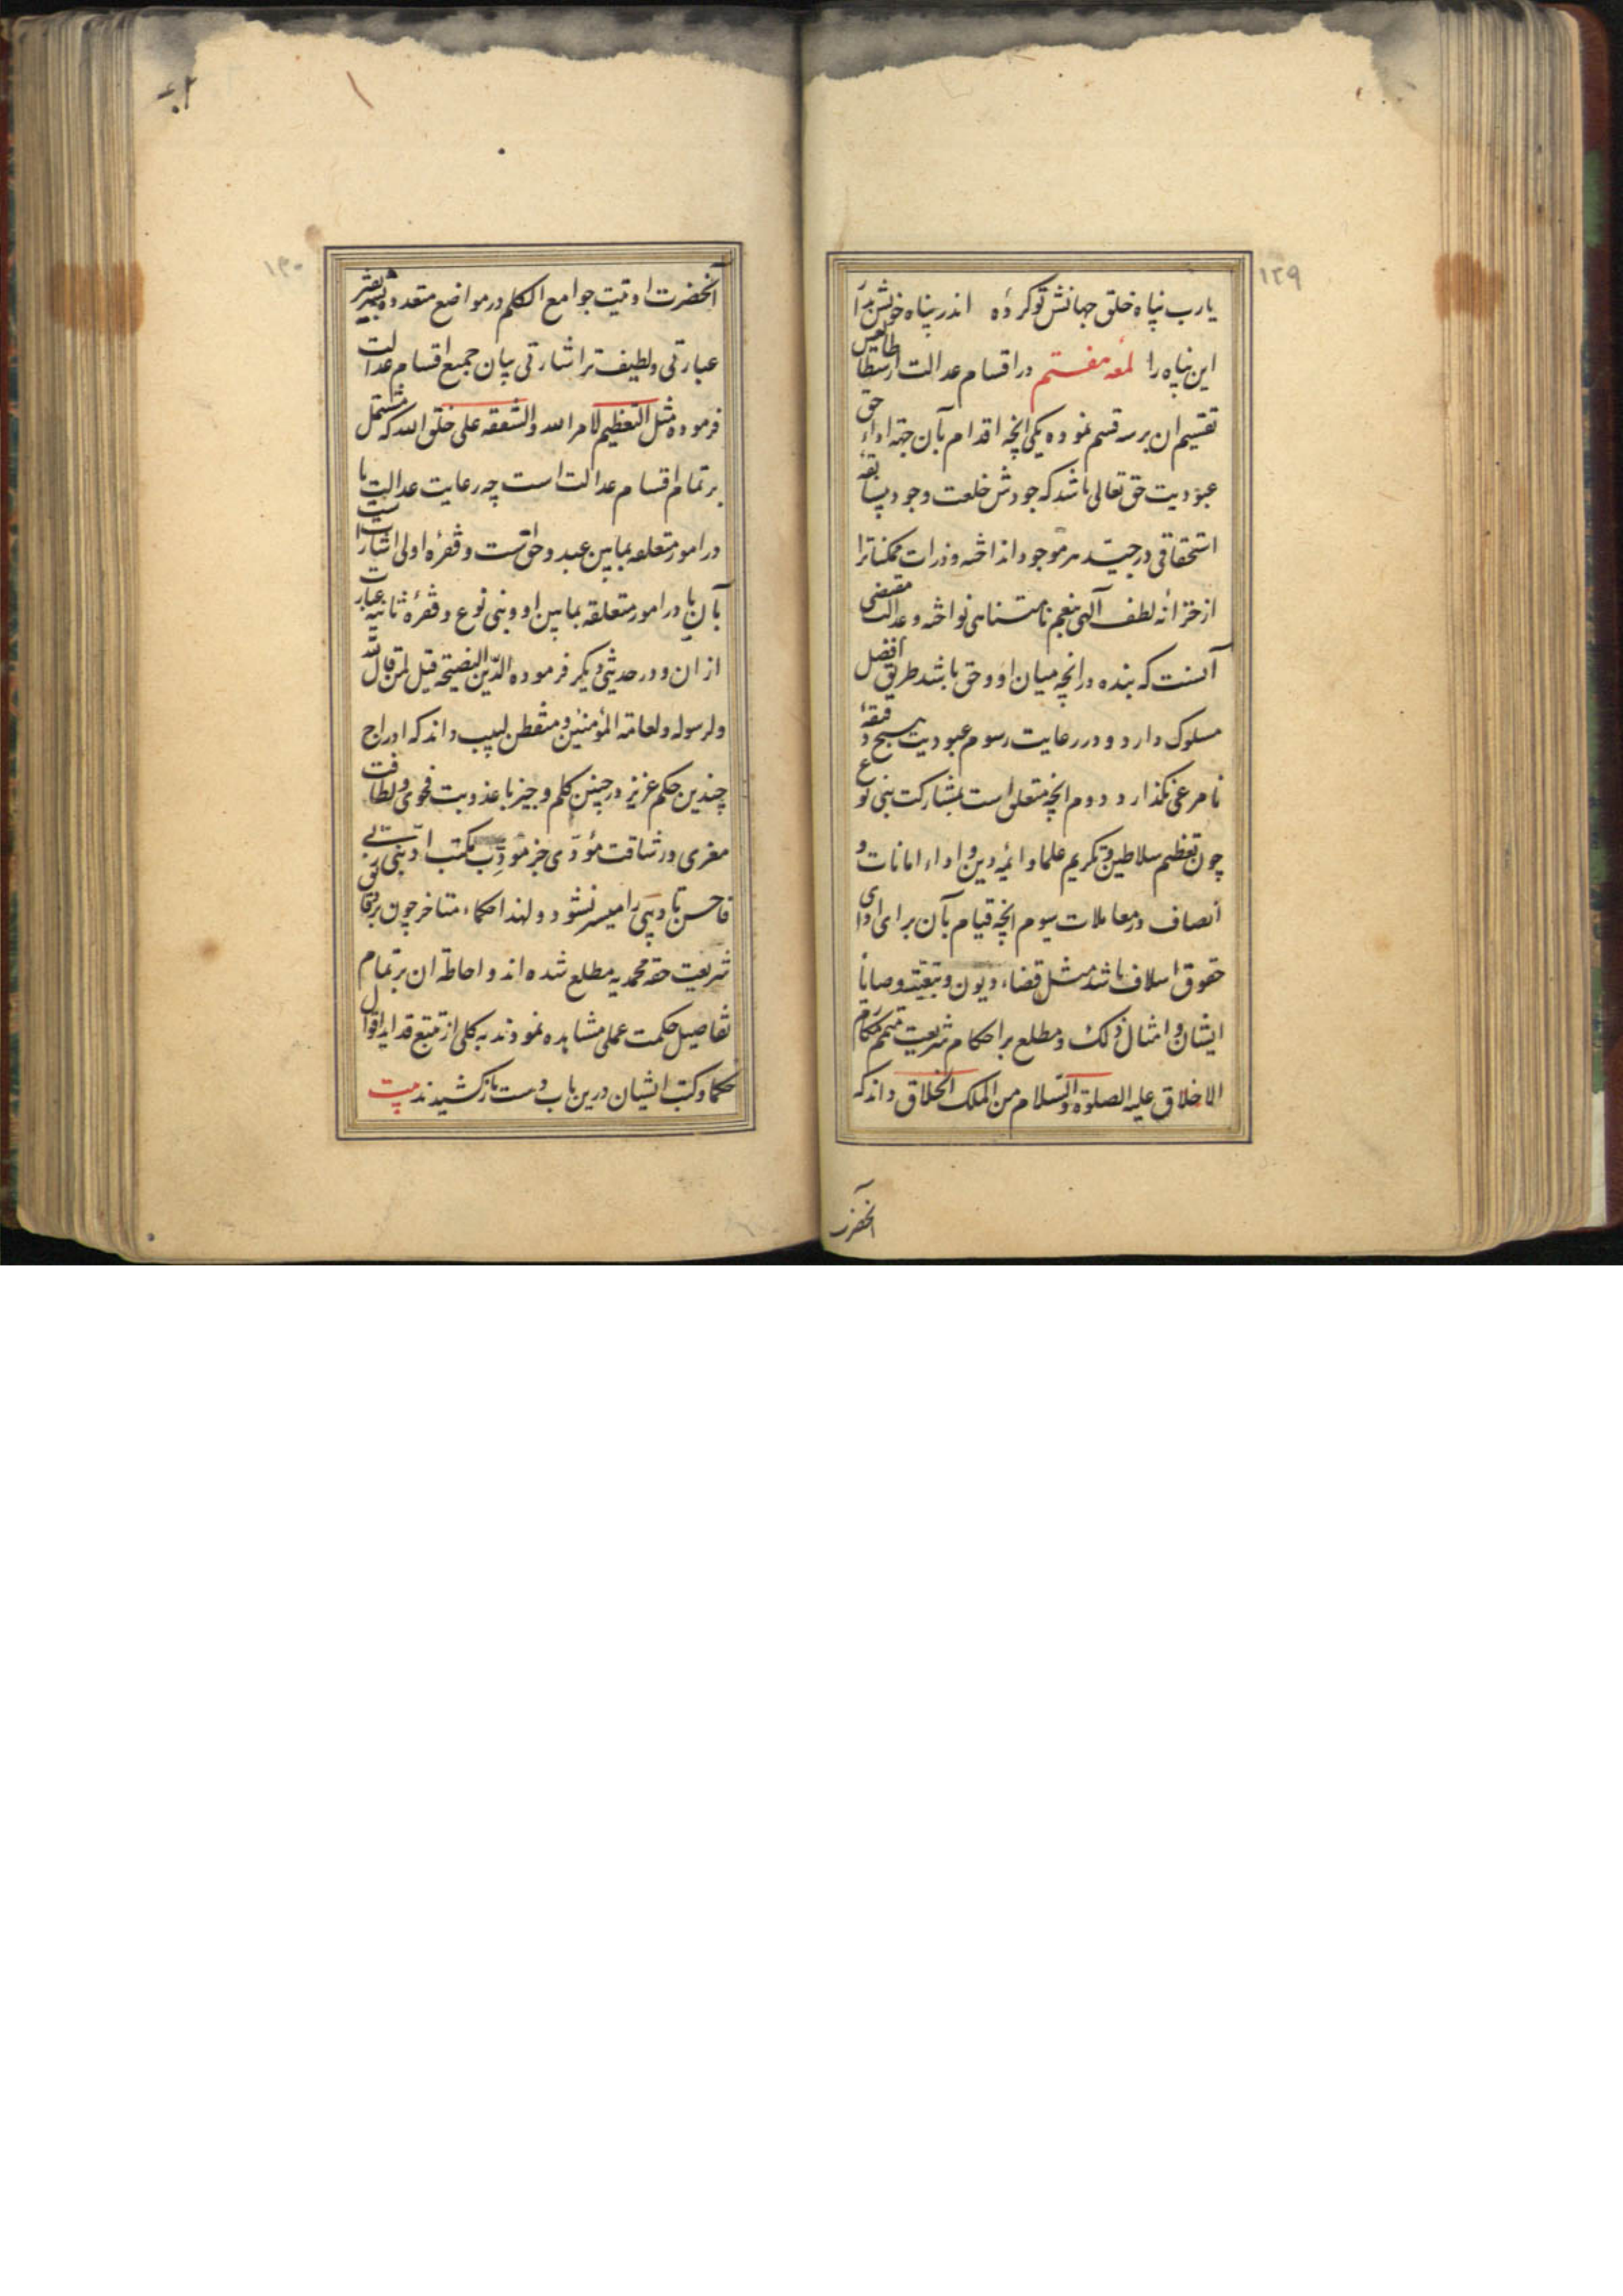 ۱۲۹
یارب پناه خلق جهانش تو کرده اندر پناه خویش بدار
این پناه را لمعه هفتم در اقسام عدالت ارسطاطالیس
تقسیم ان بر سه قسم نموده یکی انچه اقدام بآن جهة اداء حق
عبودیت حق تعالی باشد که جودش خلعت وجود بی سابقه
استحقاقی در جیب هر موجود انداخته و ذرات ممکناترا
از خزانه لطف آلهی بنعم نامتناهی نواخته و عدالت مقتضی
آنست که بنده در انچه میان او و حق باشد طریق افضل
مسلوک دارد و در رعایت رسوم عبودیت هیچ دقیقه
نامرعی نکذارد و دوم انچه متعلق است بمشارکت بنی نوع
چون تعظیم سلاطین و تکریم علما و ائمه دین و اداء امانات و
انصاف در معاملات سیوم انچه قیام بآن برای ادای
حقوق اسلاف باشد مثل قضاء دیون و تنفیذ وصایا
ایشان و امثال ذلک و مطلع بر احکام شریعت متمم مکارم
الاخلاق علیه الصلوة والسلام من الملک الخلاق داند که
انحضرت
۱۳۰
آنحضرت اوتیت جوامع الکلم در مواضع متعدده
عبارتی و لطیف تر اشارتی بیان جمیع اقسام عدالت
فرموده مثل التعظیم لامر الله والشفقه علی خلق الله که مشتمل
بر تمام اقسام عدالت است چه رعایت عدالت یا
در امور متعلقه بمابین عبد و حق است و فقره اولی اشارت
بآن یا در امور متعلقه بمابین او و بنی نوع و فقره ثانیه عبارت
از ان و در حدیثی دیکر فرموده الدین النصیحة قیل لمن قال لله
ولرسوله ولعامة المؤمنین و متفطن لبیب داند که ادراج
چندین حکم عزیز در چنین کلم وجیز با عذوبت فحوی و لطافت
مغزی و رشاقت مؤدی جز مؤدب مکتب ادبنی ربی
فاحسن تادیبی را میسر نشود و لهذا حکماء متاخر چون بر دقایق
شریعت حقه محمدیه مطلع شده اند و احاطه ان بر تمام
تفاصیل حکمت عملی مشاهده نمودند به کلی از تتبع فواید اقوال
حکما و کتب ایشان درین باب دست باز کشیدند بیت